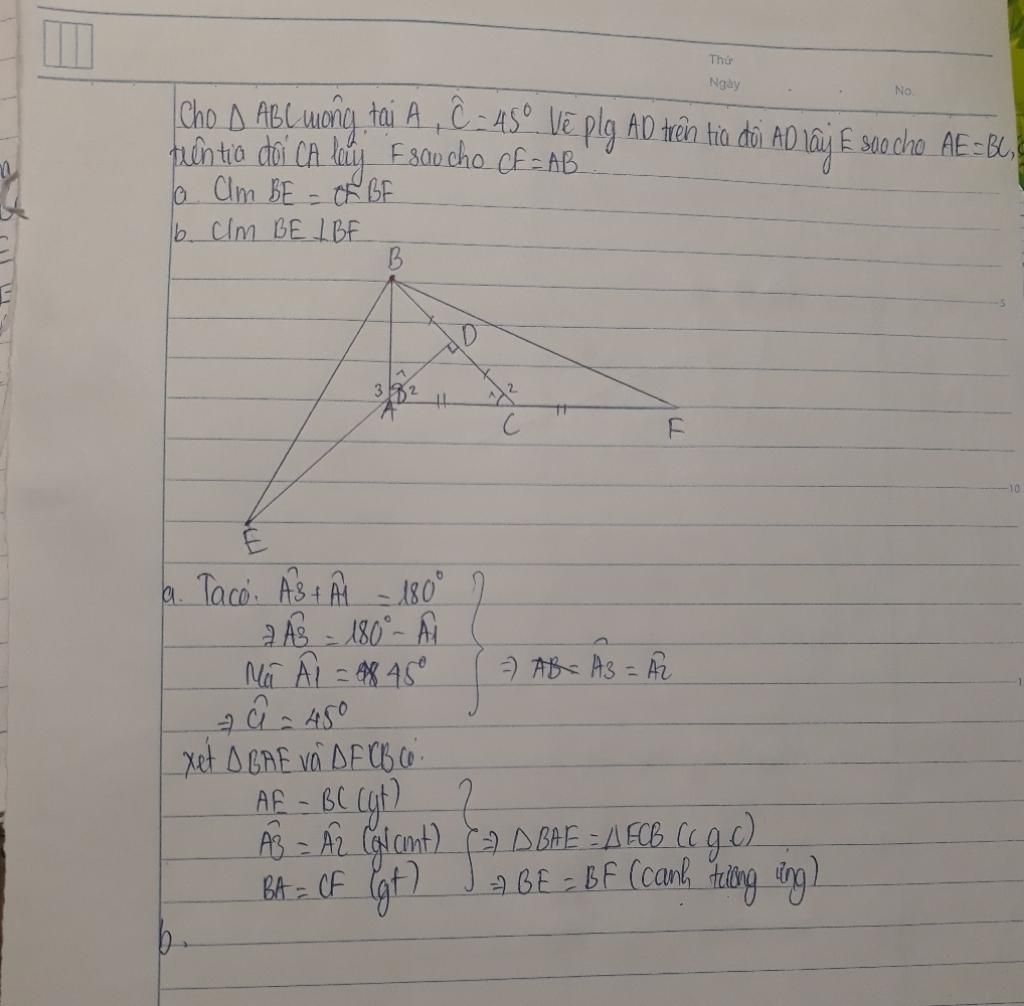 Thứ
Ngày
No.
Cho Δ ABC vuông tại A, Ĉ = 45° Vẽ plg AD trên tia đối AD lấy E sao cho AE = BC,
trên tia đối CA lấy F sao cho CF = AB
a. C/m BE = CF BF
b. C/m BE ⊥ BF
B
D
3 1 2
A
1 2
C
F
E
5
10
a. Ta có: Â3 + Â1 = 180°
⇒ Â3 = 180° - Â1
Mà Â1 = 45°
⇒ AB = Â3 = Â2
⇒ Ĉ1 = 45°
Xét ΔBAE và ΔFCB có:
AE = BC (gt)
Â3 = Â2 (cmt)
⇒ ΔBAE = ΔFCB (c g c)
BA = CF (gt)
⇒ BE = BF (cạnh tương ứng)
b.